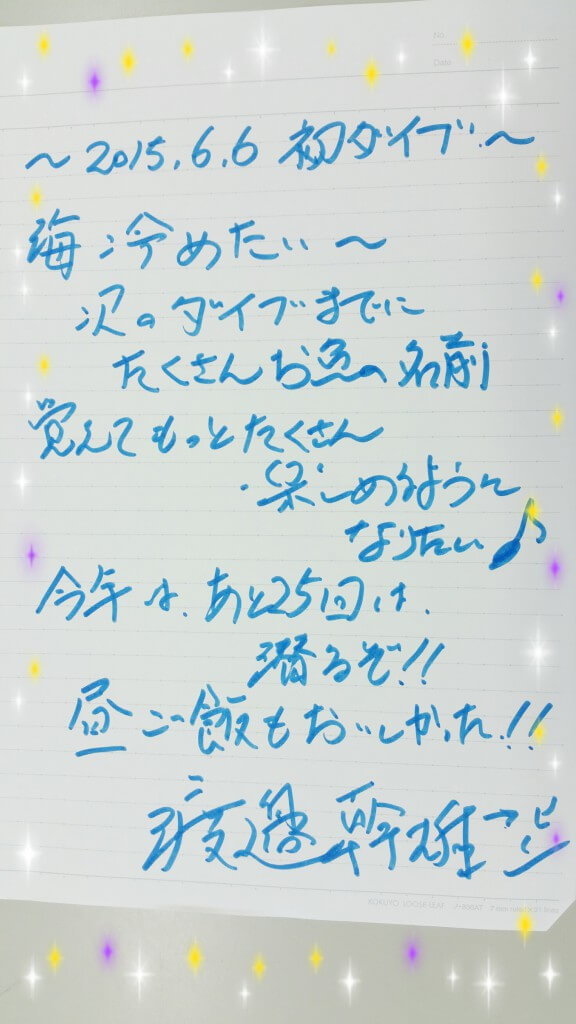 No.
Date
～2015.6.6 初ダイブ～
海冷めたい～
次のダイブまでに
たくさんお魚の名前
覚えてもっとたくさん
楽しめるように
なりたい♪
今年は、あと25回は、
潜るぞ!!
昼ご飯もおいしかった!!
渡邊 幹雄
KOKUYO LOOSE-LEAF ノ-836AT 7 mm ruled×31 lines